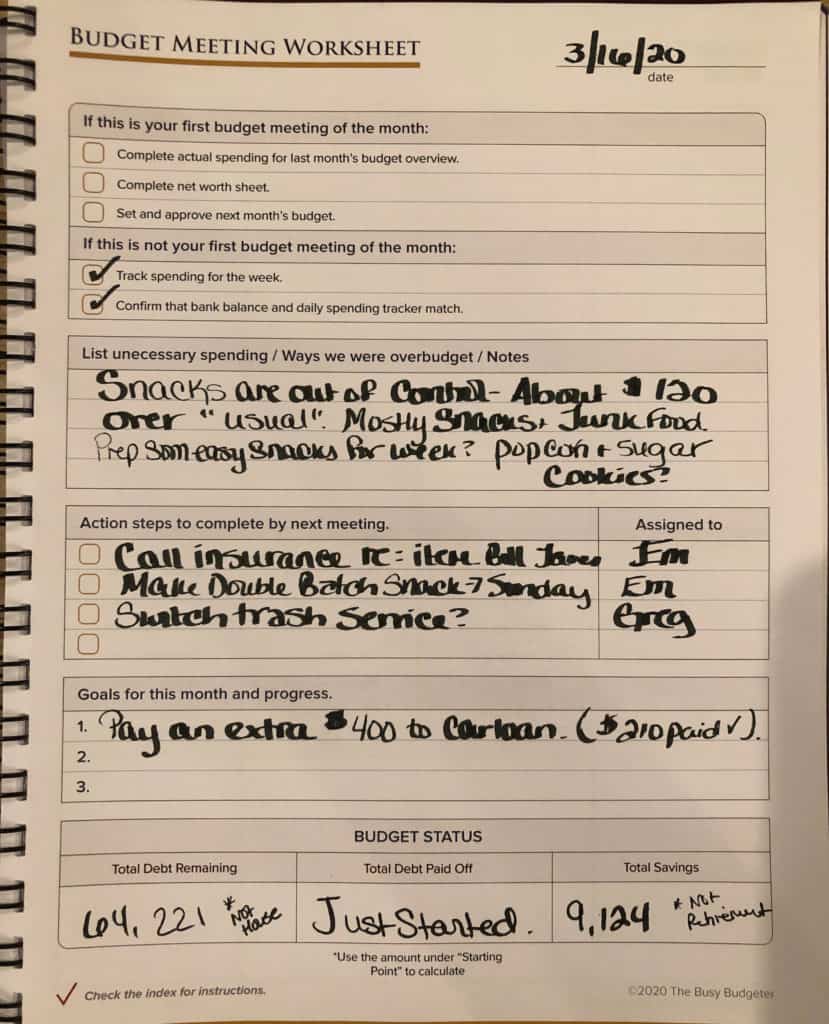 BUDGET MEETING WORKSHEET
3/16/20
date
If this is your first budget meeting of the month:
Complete actual spending for last month's budget overview.
Complete net worth sheet.
Set and approve next month's budget.
If this is not your first budget meeting of the month:
Track spending for the week.
Confirm that bank balance and daily spending tracker match.
List unecessary spending / Ways we were overbudget / Notes
Snacks are out of Control - About $120
over "usual". Mostly Snacks + Junk Food.
Prep Som easy Snacks for week? popcorn + sugar
Cookies?
Action steps to complete by next meeting. Assigned to
Call insurance re: Bill Em
Make Double Batch Snack → Sunday Em
Switch trash Service? Greg
Goals for this month and progress.
1. Pay an extra $400 to Car loan. ($210 paid ✓).
2.
3.
BUDGET STATUS
Total Debt Remaining Total Debt Paid Off Total Savings
64,221 * Not House Just Started. 9,124 * Not Retirement
*Use the amount under "Starting
Point" to calculate
Check the index for instructions. ©2020 The Busy Budgeter